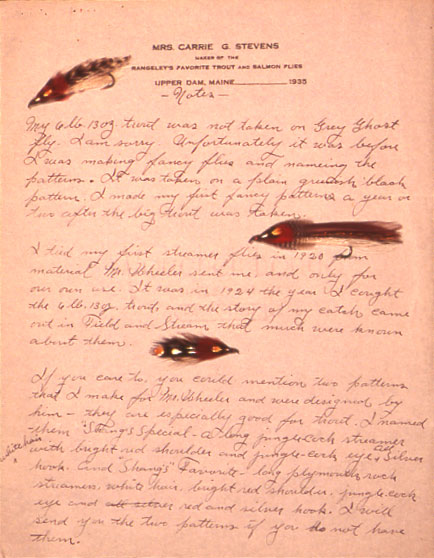 MRS. CARRIE G. STEVENS
MAKER OF THE
RANGELEY'S FAVORITE TROUT AND SALMON FLIES
UPPER DAM, MAINE 1935
- Notes -
My 6 lb. 13 oz. trout was not taken on Grey Ghost
fly. I am sorry. Unfortunately it was before
I was making fancy flies and nameing the
patterns. It was taken on a plain greenish black
pattern. I made my first fancy patterns a year or
two after the big trout was taken.
I tied my first streamer flies in 1920 from
material Mr. Wheeler sent me, and only for
our own use. It was in 1924 the year I caught
the 6 lb. 13 oz. trout, and the story of my catch came
out in Field and Stream that much were known
about them.
If you care to, you could mention two patterns
that I make for Mr. Wheeler and were designed by
him - they are especially good for trout. I named
them "Shang's Special - a long jungle-cock streamer
white hair
with bright red shoulder and jungle-cock eye, Silver
hook. And Shang's" Favorite - long plymouth rock
streamers, white hair, bright red shoulder, jungle-cock
eye and red and silver hook. I will
send you the two patterns if you do not have
them.